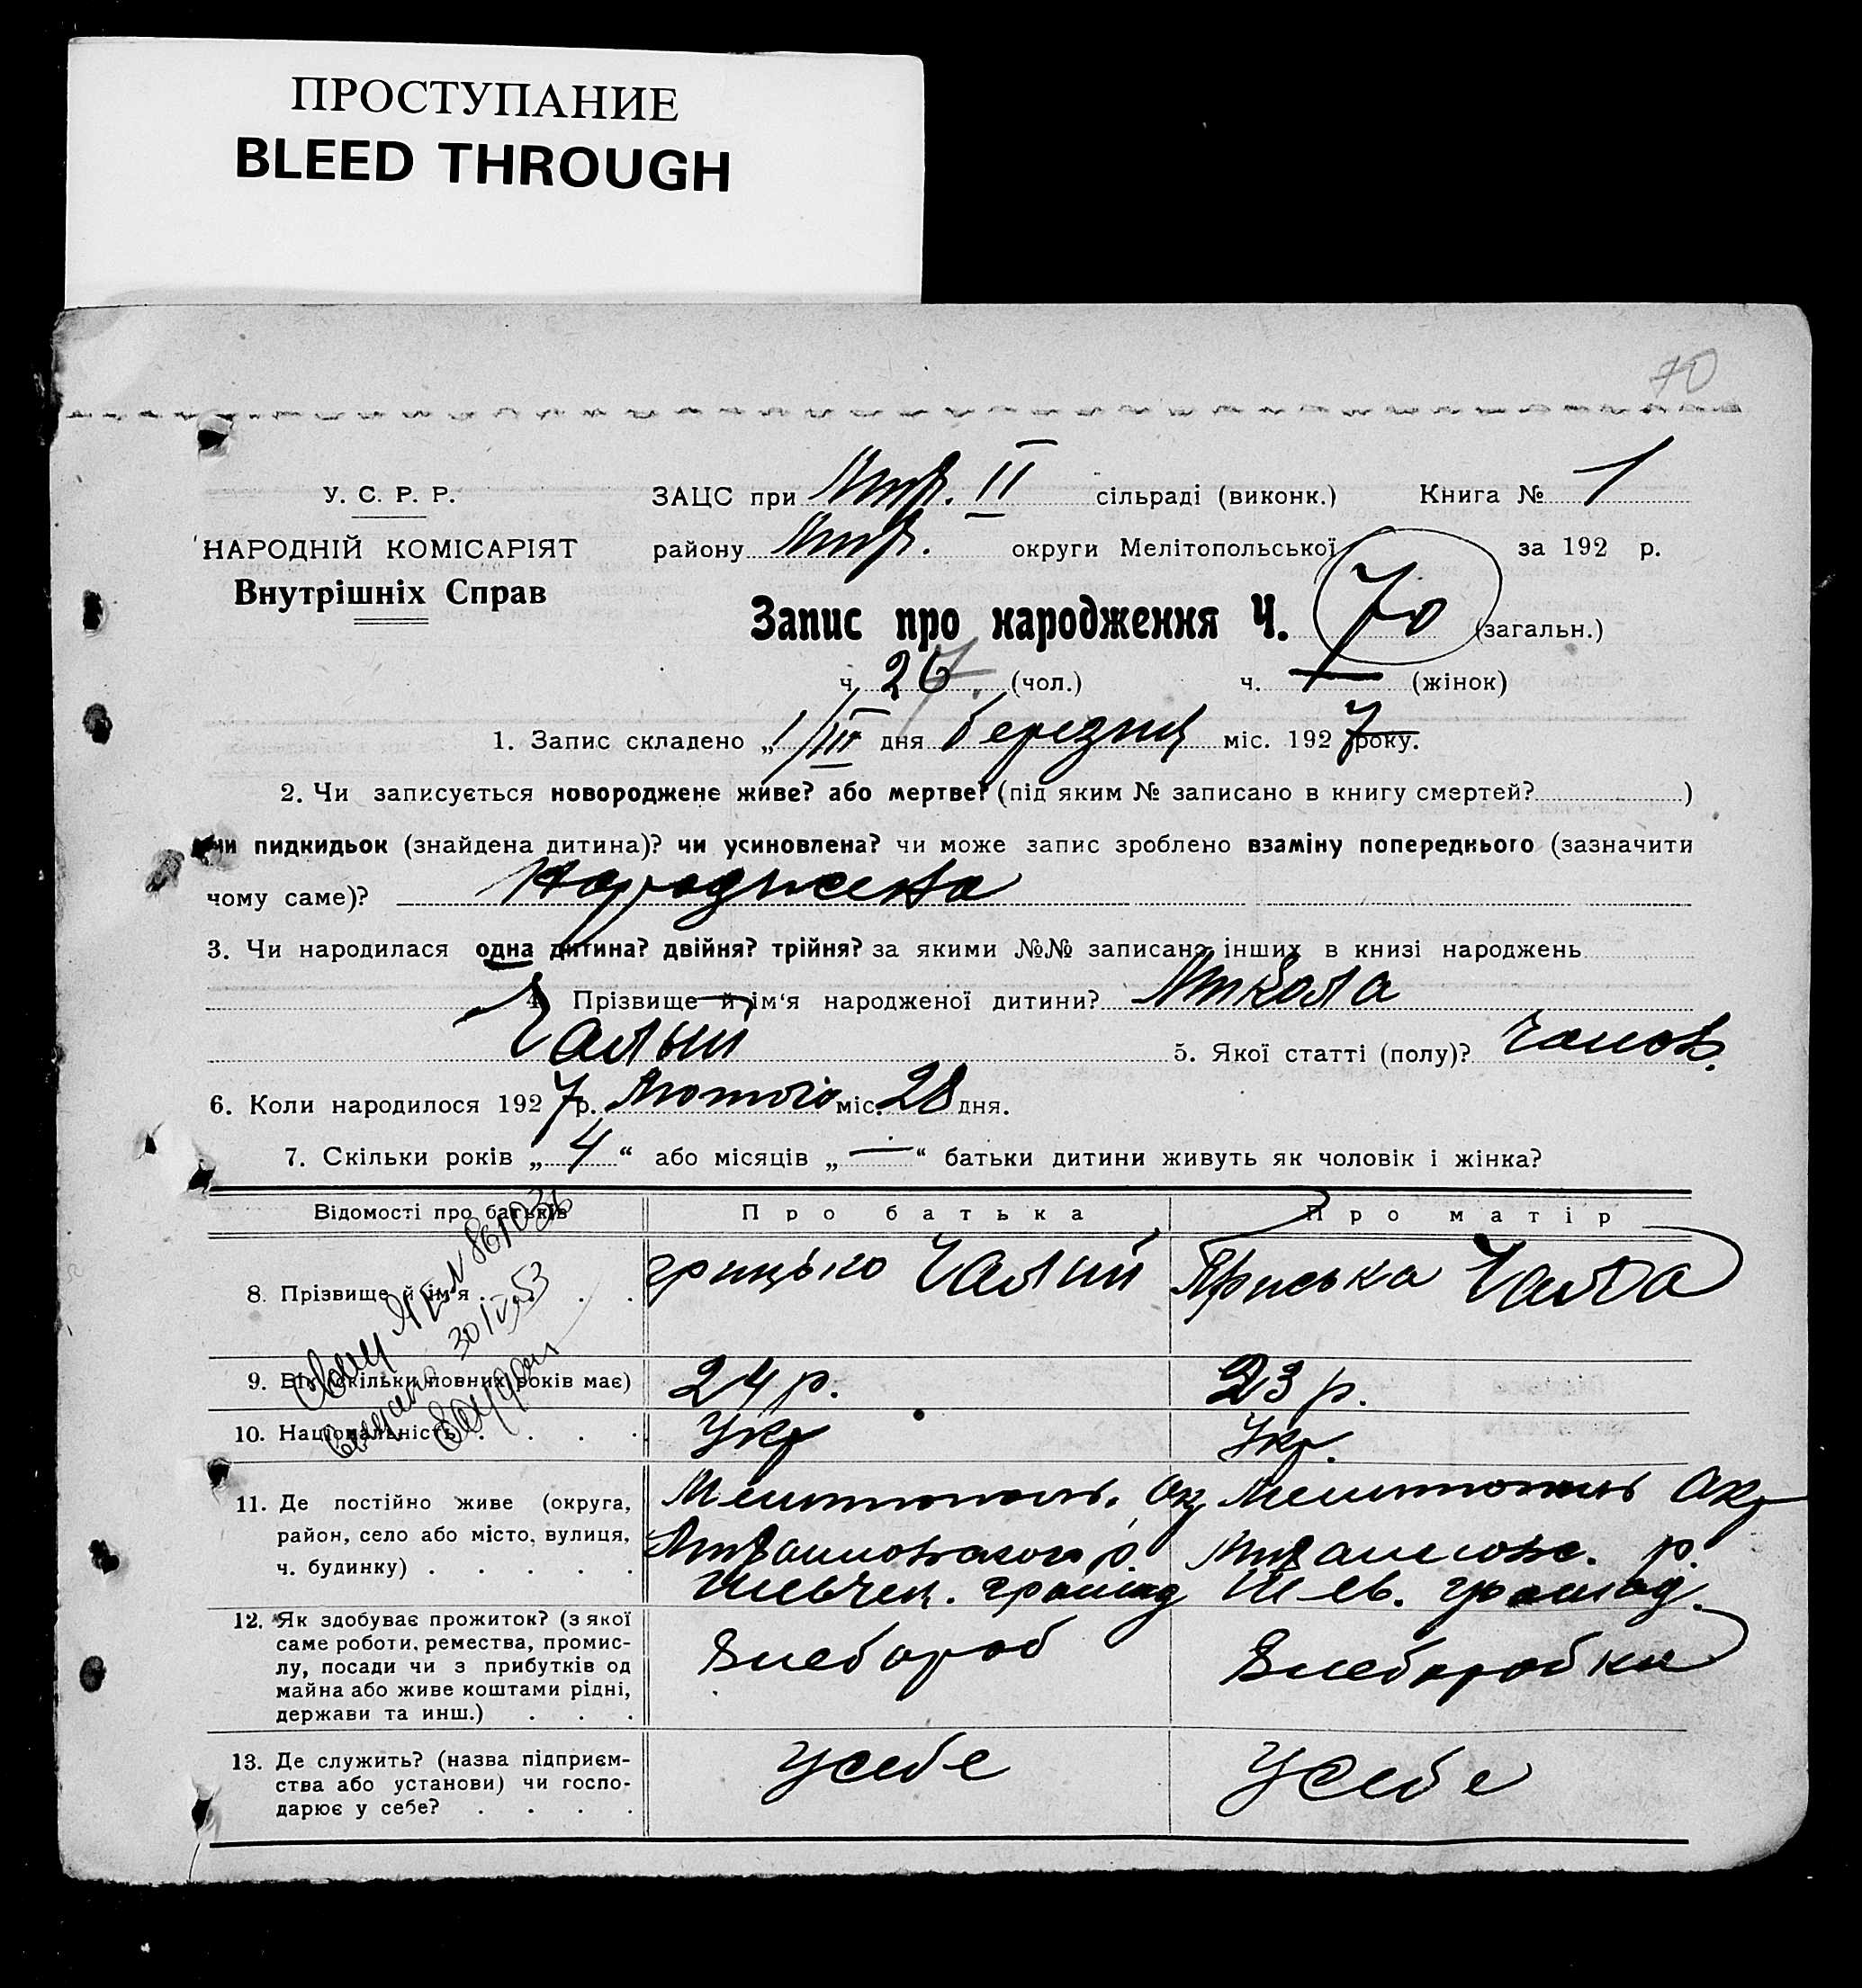 ПРОСТУПАНИЕ
BLEED THROUGH
70
У. С. Р. Р.
НАРОДНІЙ КОМІСАРІЯТ
Внутрішніх Справ
ЗАЦС при Мих. II сільраді (виконк.) Книга № 1
району Мих. округи Мелітопольської за 192 р.
Запис про народження Ч. 70 (загальн.)
ч. 267 (чол.) ч. — (жінок)
1. Запис складено „1/III дня березня міс. 1927 року.
2. Чи записується новороджене живе? або мертве? (під яким № записано в книгу смертей? )
чи пидкидьок (знайдена дитина)? чи усиновлена? чи може запис зроблено взаміну попереднього (зазначити
чому саме)? Народжена
3. Чи народилася одна дитина? двійня? трійня? за якими №№ записано інших в книзі народжень
4. Прізвище й ім‘я народженої дитини? Микола
Чалый 5. Якої статті (полу)? Чолов.
6. Коли народилося 1927 р. Лютого міс. 28 дня.
7. Скільки років „4“ або місяців „—“ батьки дитини живуть як чоловік і жінка?
Відомості про батьків Про батька Про матір
8. Прізвище й ім‘я . . . . Грицько Чалий Приська Чала
9. Вік (скільки повних років має) 24 р. 23 р.
10. Національність . . . . Укр Укр.
11. Де постійно живе (округа, район, село або місто, вулиця, ч. будинку) . . . . .
Мелитополь. Окр Мелитополь Окр
Михайловского р. Михайловс. р.
Шевчен. громад Шев. громад.
12. Як здобуває прожиток? (з якої
саме роботи, ремества, промис-
лу, посади чи з прибутків од
майна або живе коштами рідні,
держави та инш.) . . .
Хлебороб Хлеборобка
13. Де служить? (назва підприєм-
ства або установи) чи госпо-
дарює у себе? . . . .
У себе У себе
30/IV 53